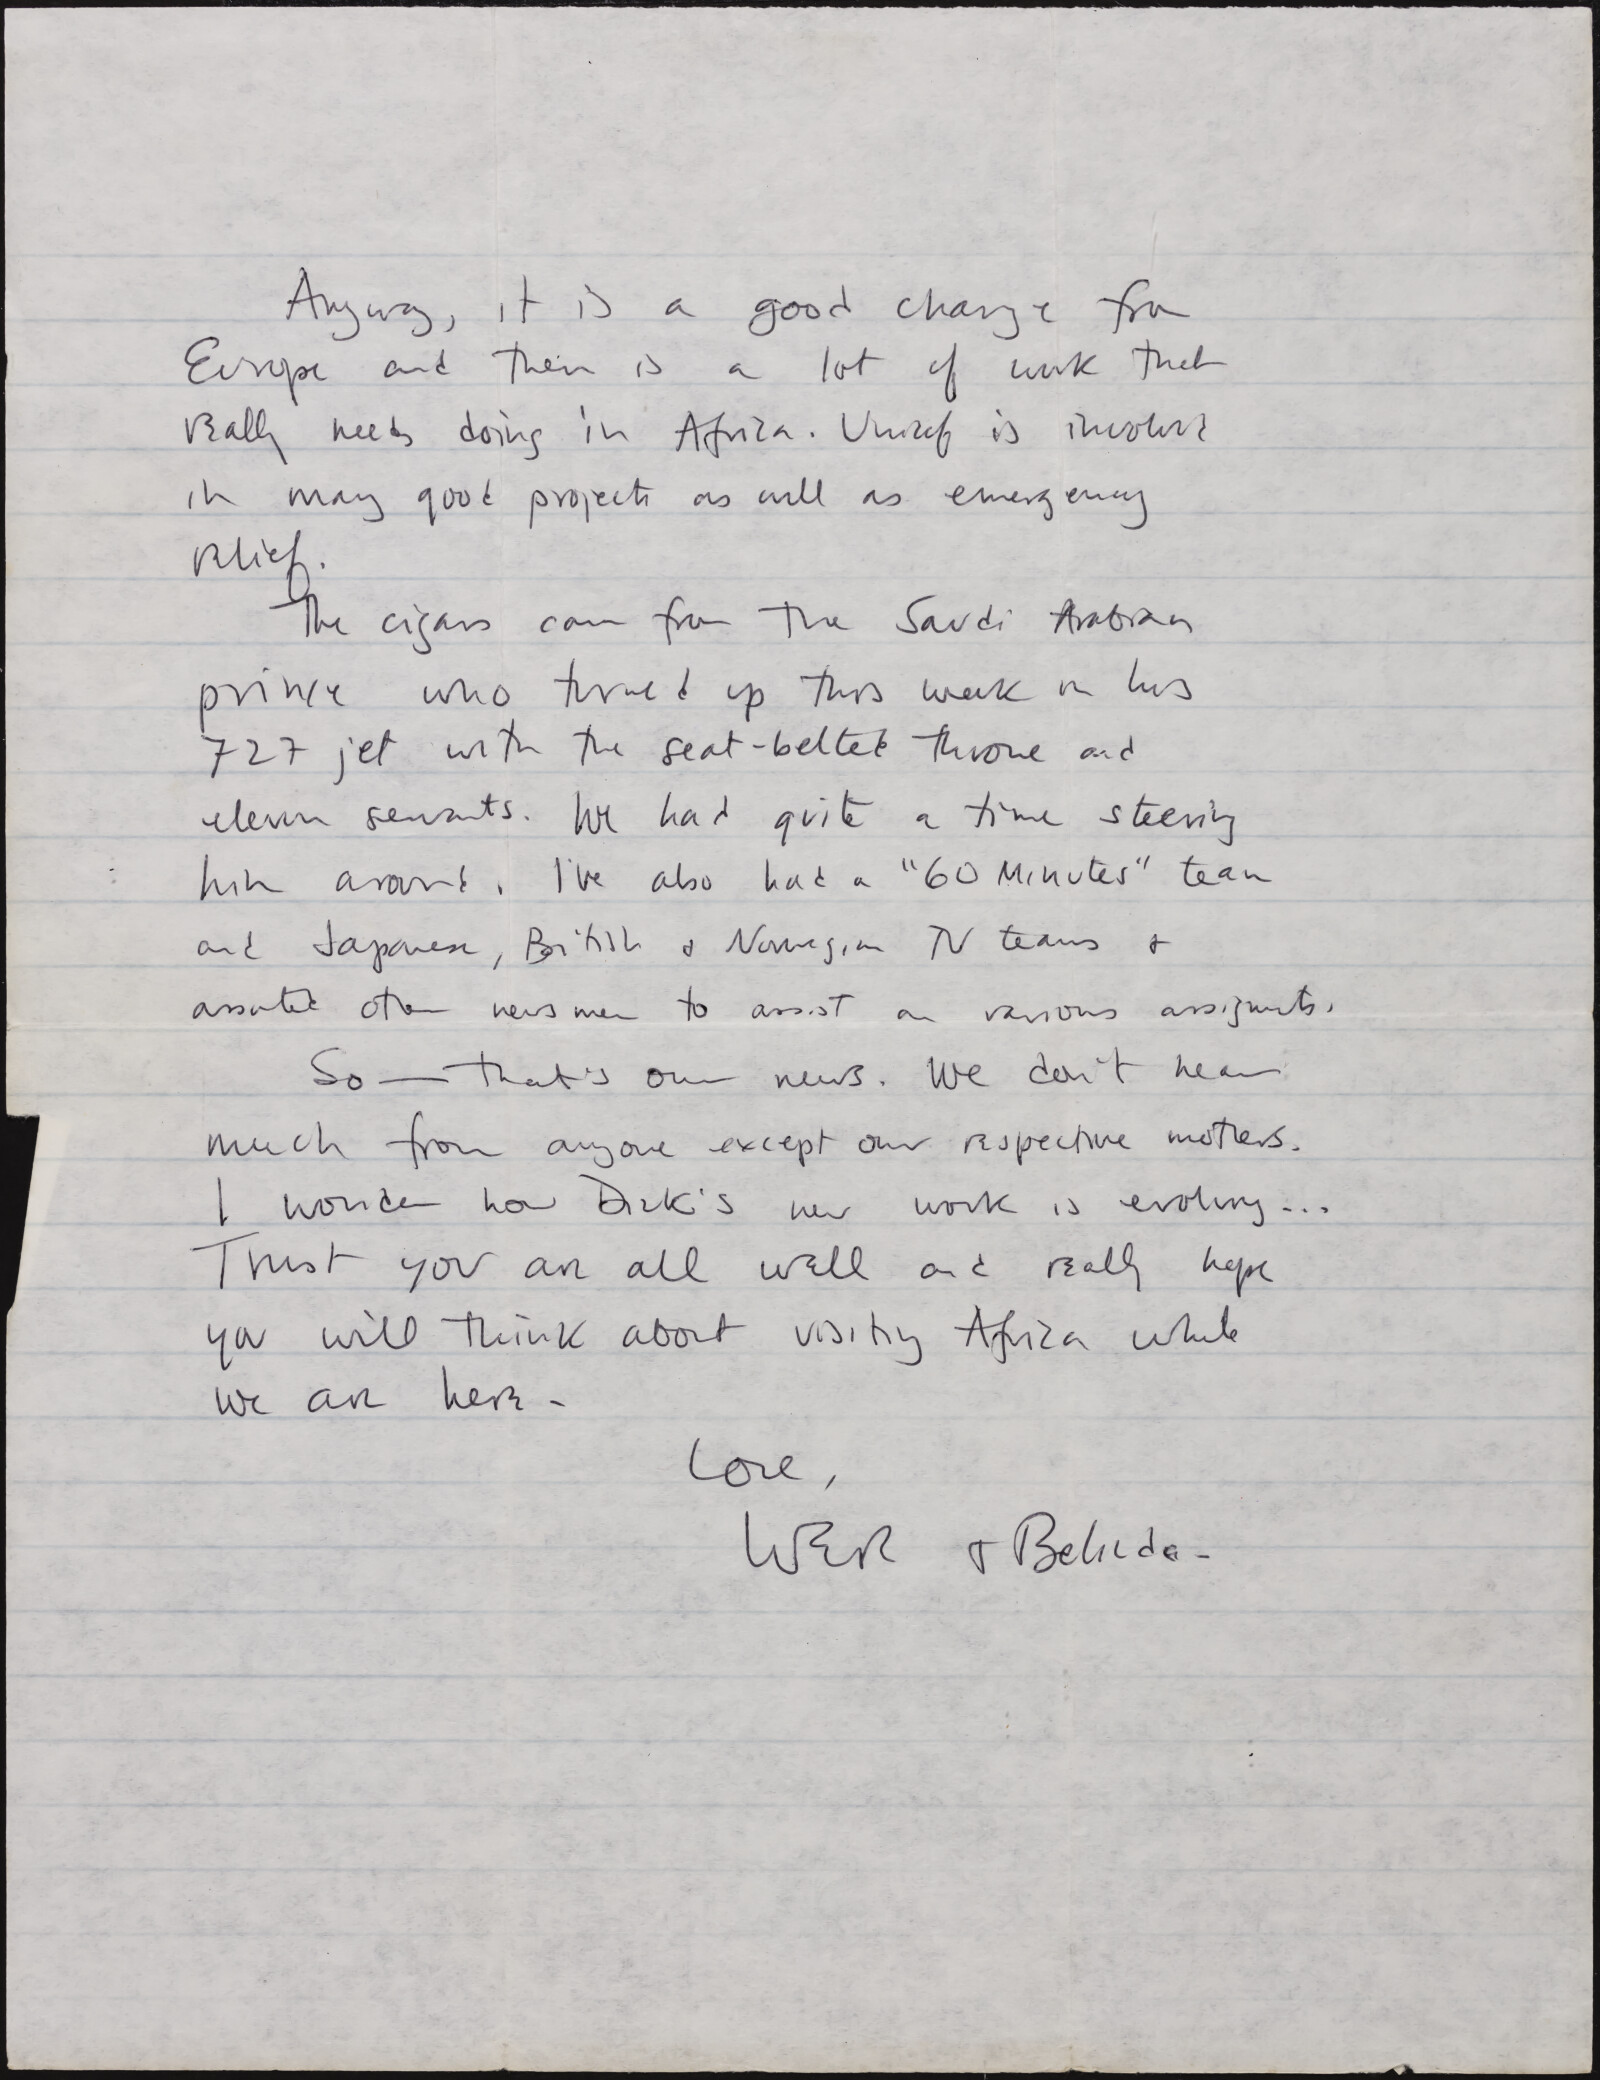 Anyway, it is a good change from
Europe and there is a lot of work that
really needs doing in Africa. Unicef is involved
in many good projects as well as emergency
relief.
The cigars came from the Saudi Arabian
prince who turned up this week in his
727 jet with the seat-belted throne and
eleven servants. We had quite a time steering
him around. I've also had a "60 Minutes" team
and Japanese, British & Norwegian TV teams &
assorted other newsmen to assist on various assignments.
So — that's our news. We don't hear
much from anyone except our respective mothers.
I wonder how Dick's new work is evolving...
Trust you are all well and really hope
you will think about visiting Africa while
we are here -
Love,
WER & Belinda -